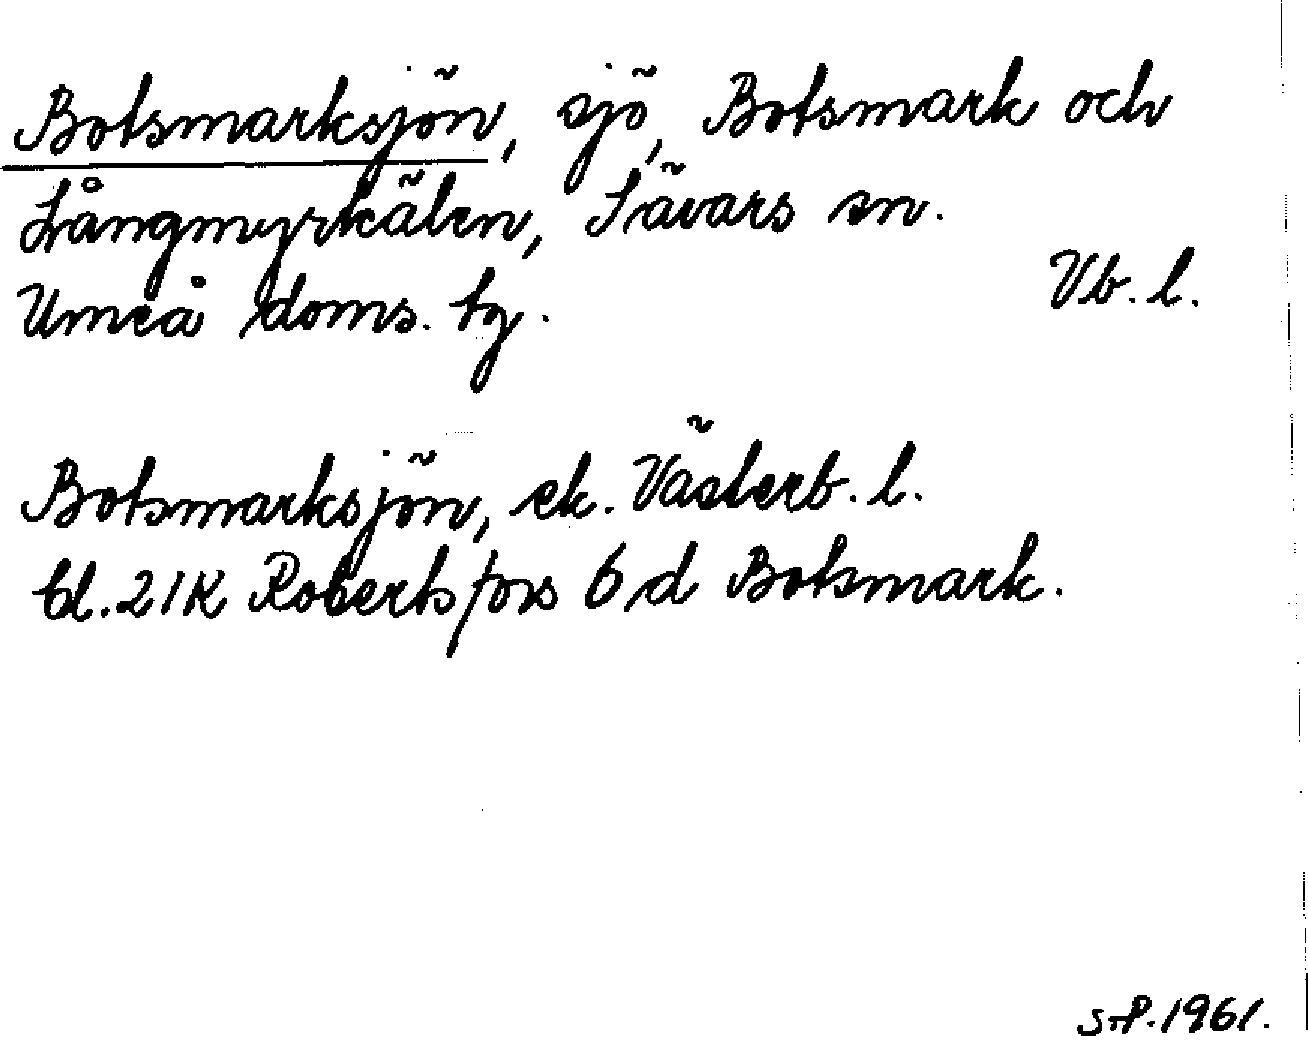 Botsmarksjön, sjö, Botsmark och
Långmyrkälen, Sävars sn.
Umeå doms. tg.
Vb. l.
Botsmarksjön, ek. Västerb. l.
bl. 21K Robertsfors 6 d Botsmark.
S.P. 1961.